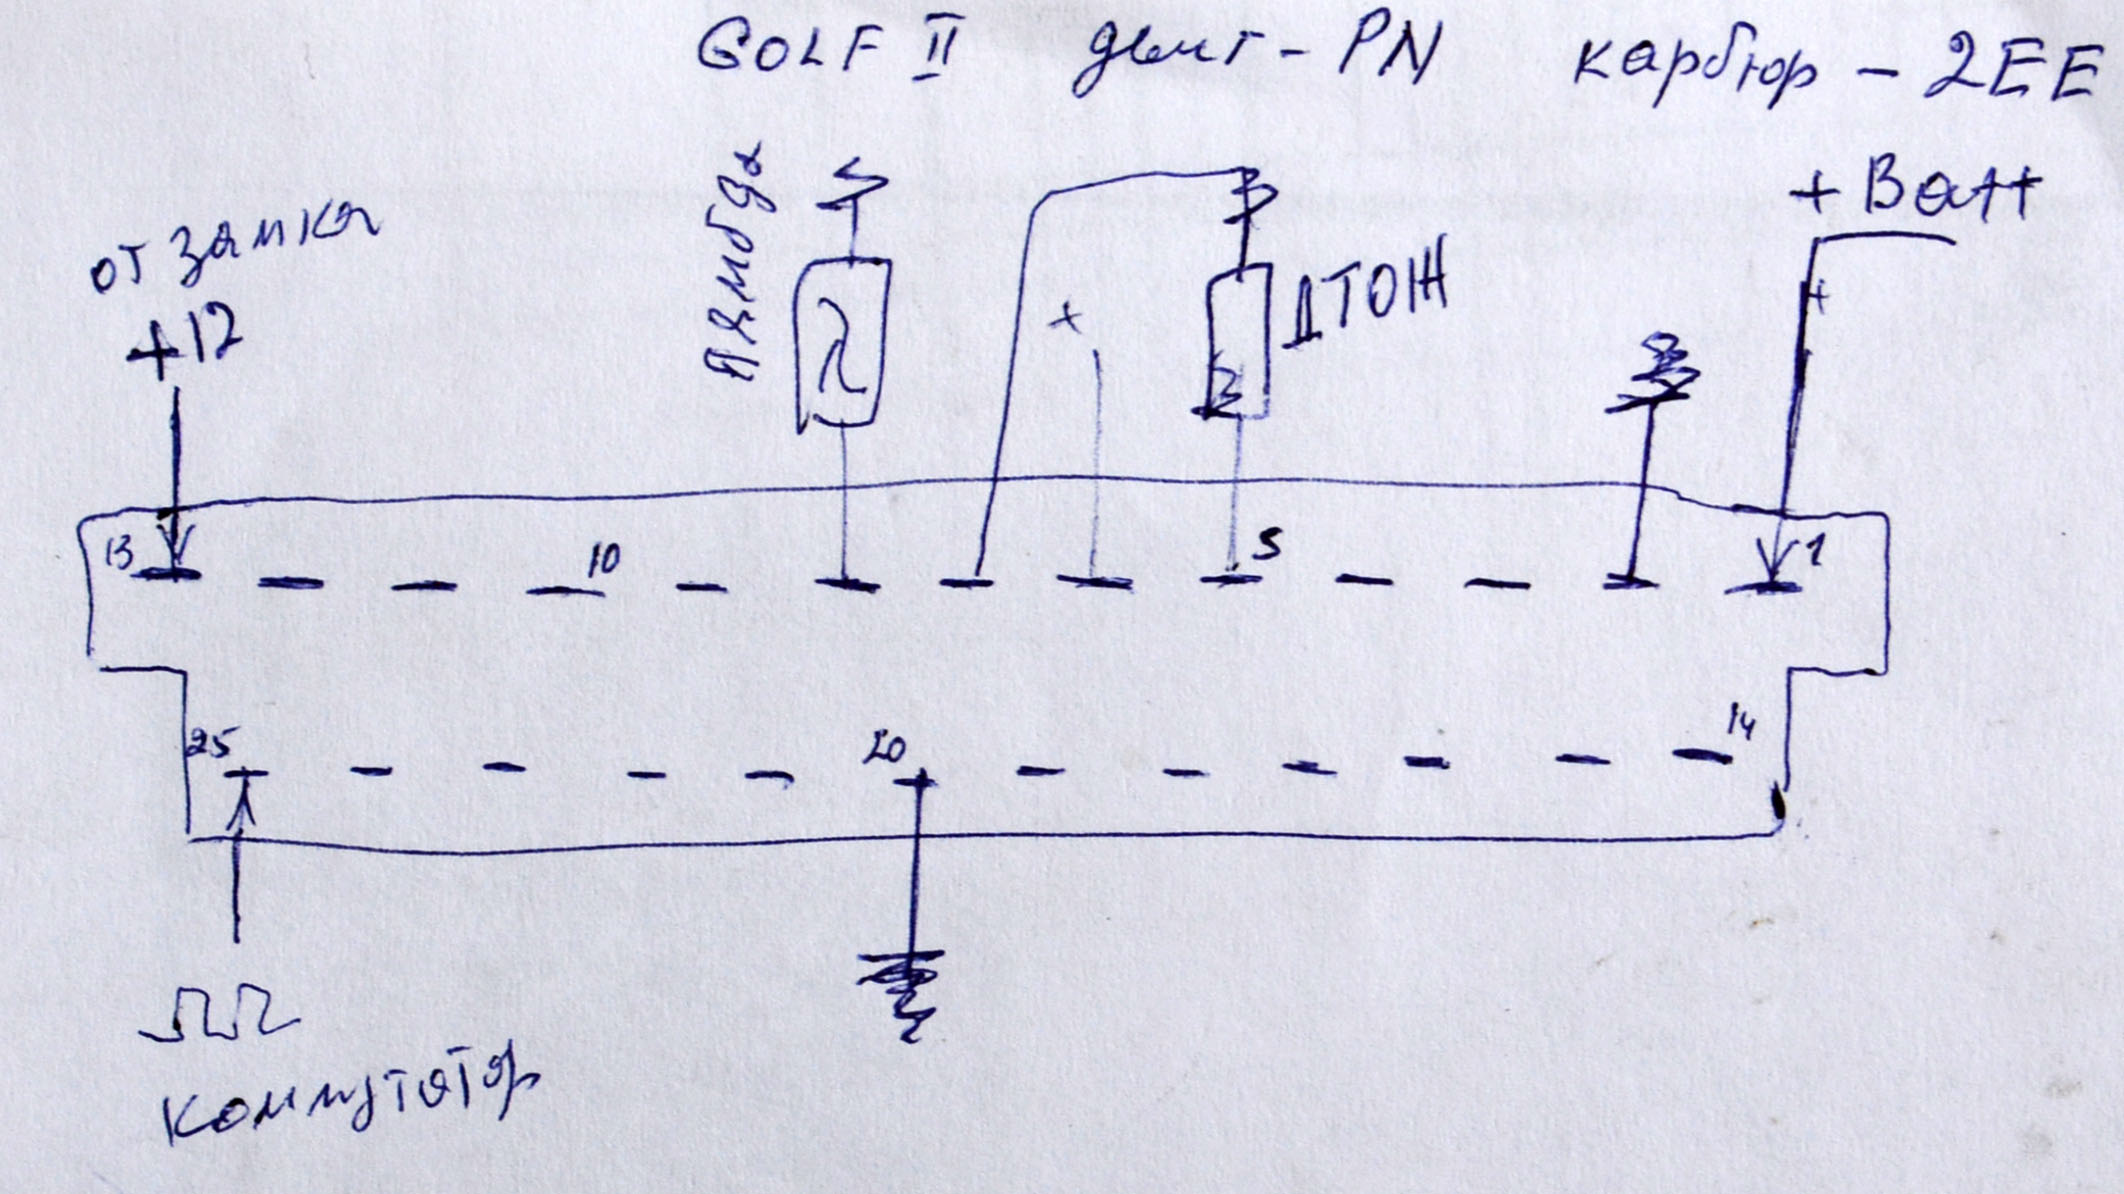 GOLF II двиг - PN карбюр - 2EE
лямбда
+ Batt
от замка
+12
ДТОЖ
+
+
13 10 5 1
25 20 14
коммутатор